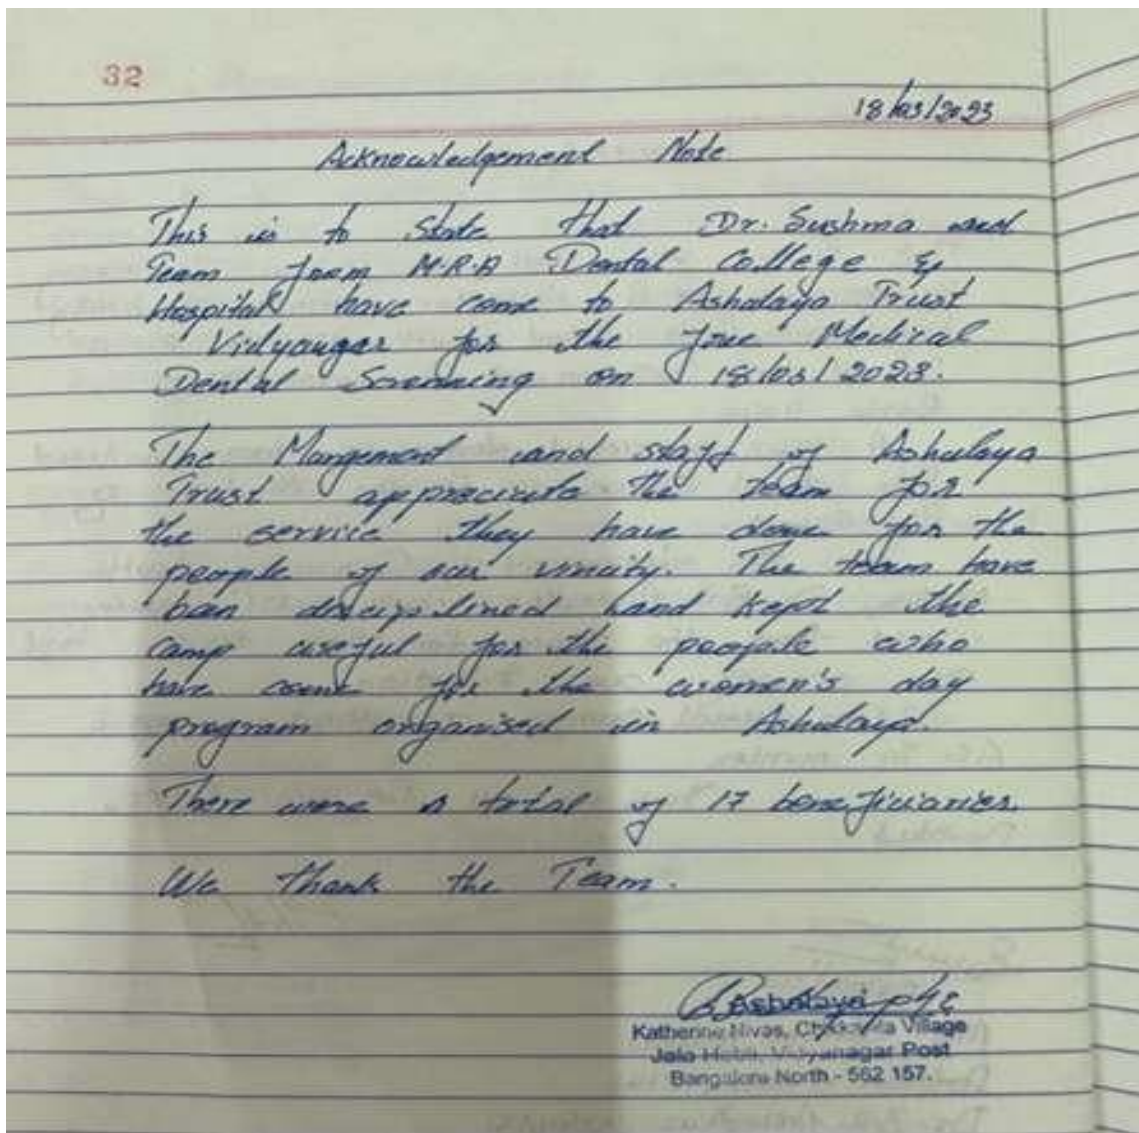 32
18/03/2023
Acknowledgement Note
This is to State that Dr. Sushma and
Team from M.R.A Dental College &
Hospital have come to Ashalaya Trust
Vidyanagar for the free Medical
Dental Screening on 18/03/2023.
The Mangement and staff of Ashalaya
Trust appreciate the team for
the service they have done for the
people of our vincity. The team have
been disciplined and kept the
camp useful for the people who
have come for the women's day
program organised in Ashalaya.
There were a total of 17 beneficiaries.
We thank the Team.
Ashalaya
Katherine Nivas, Village
Jala Hobli, Vidyanagar Post
Bangalore North - 562 157.